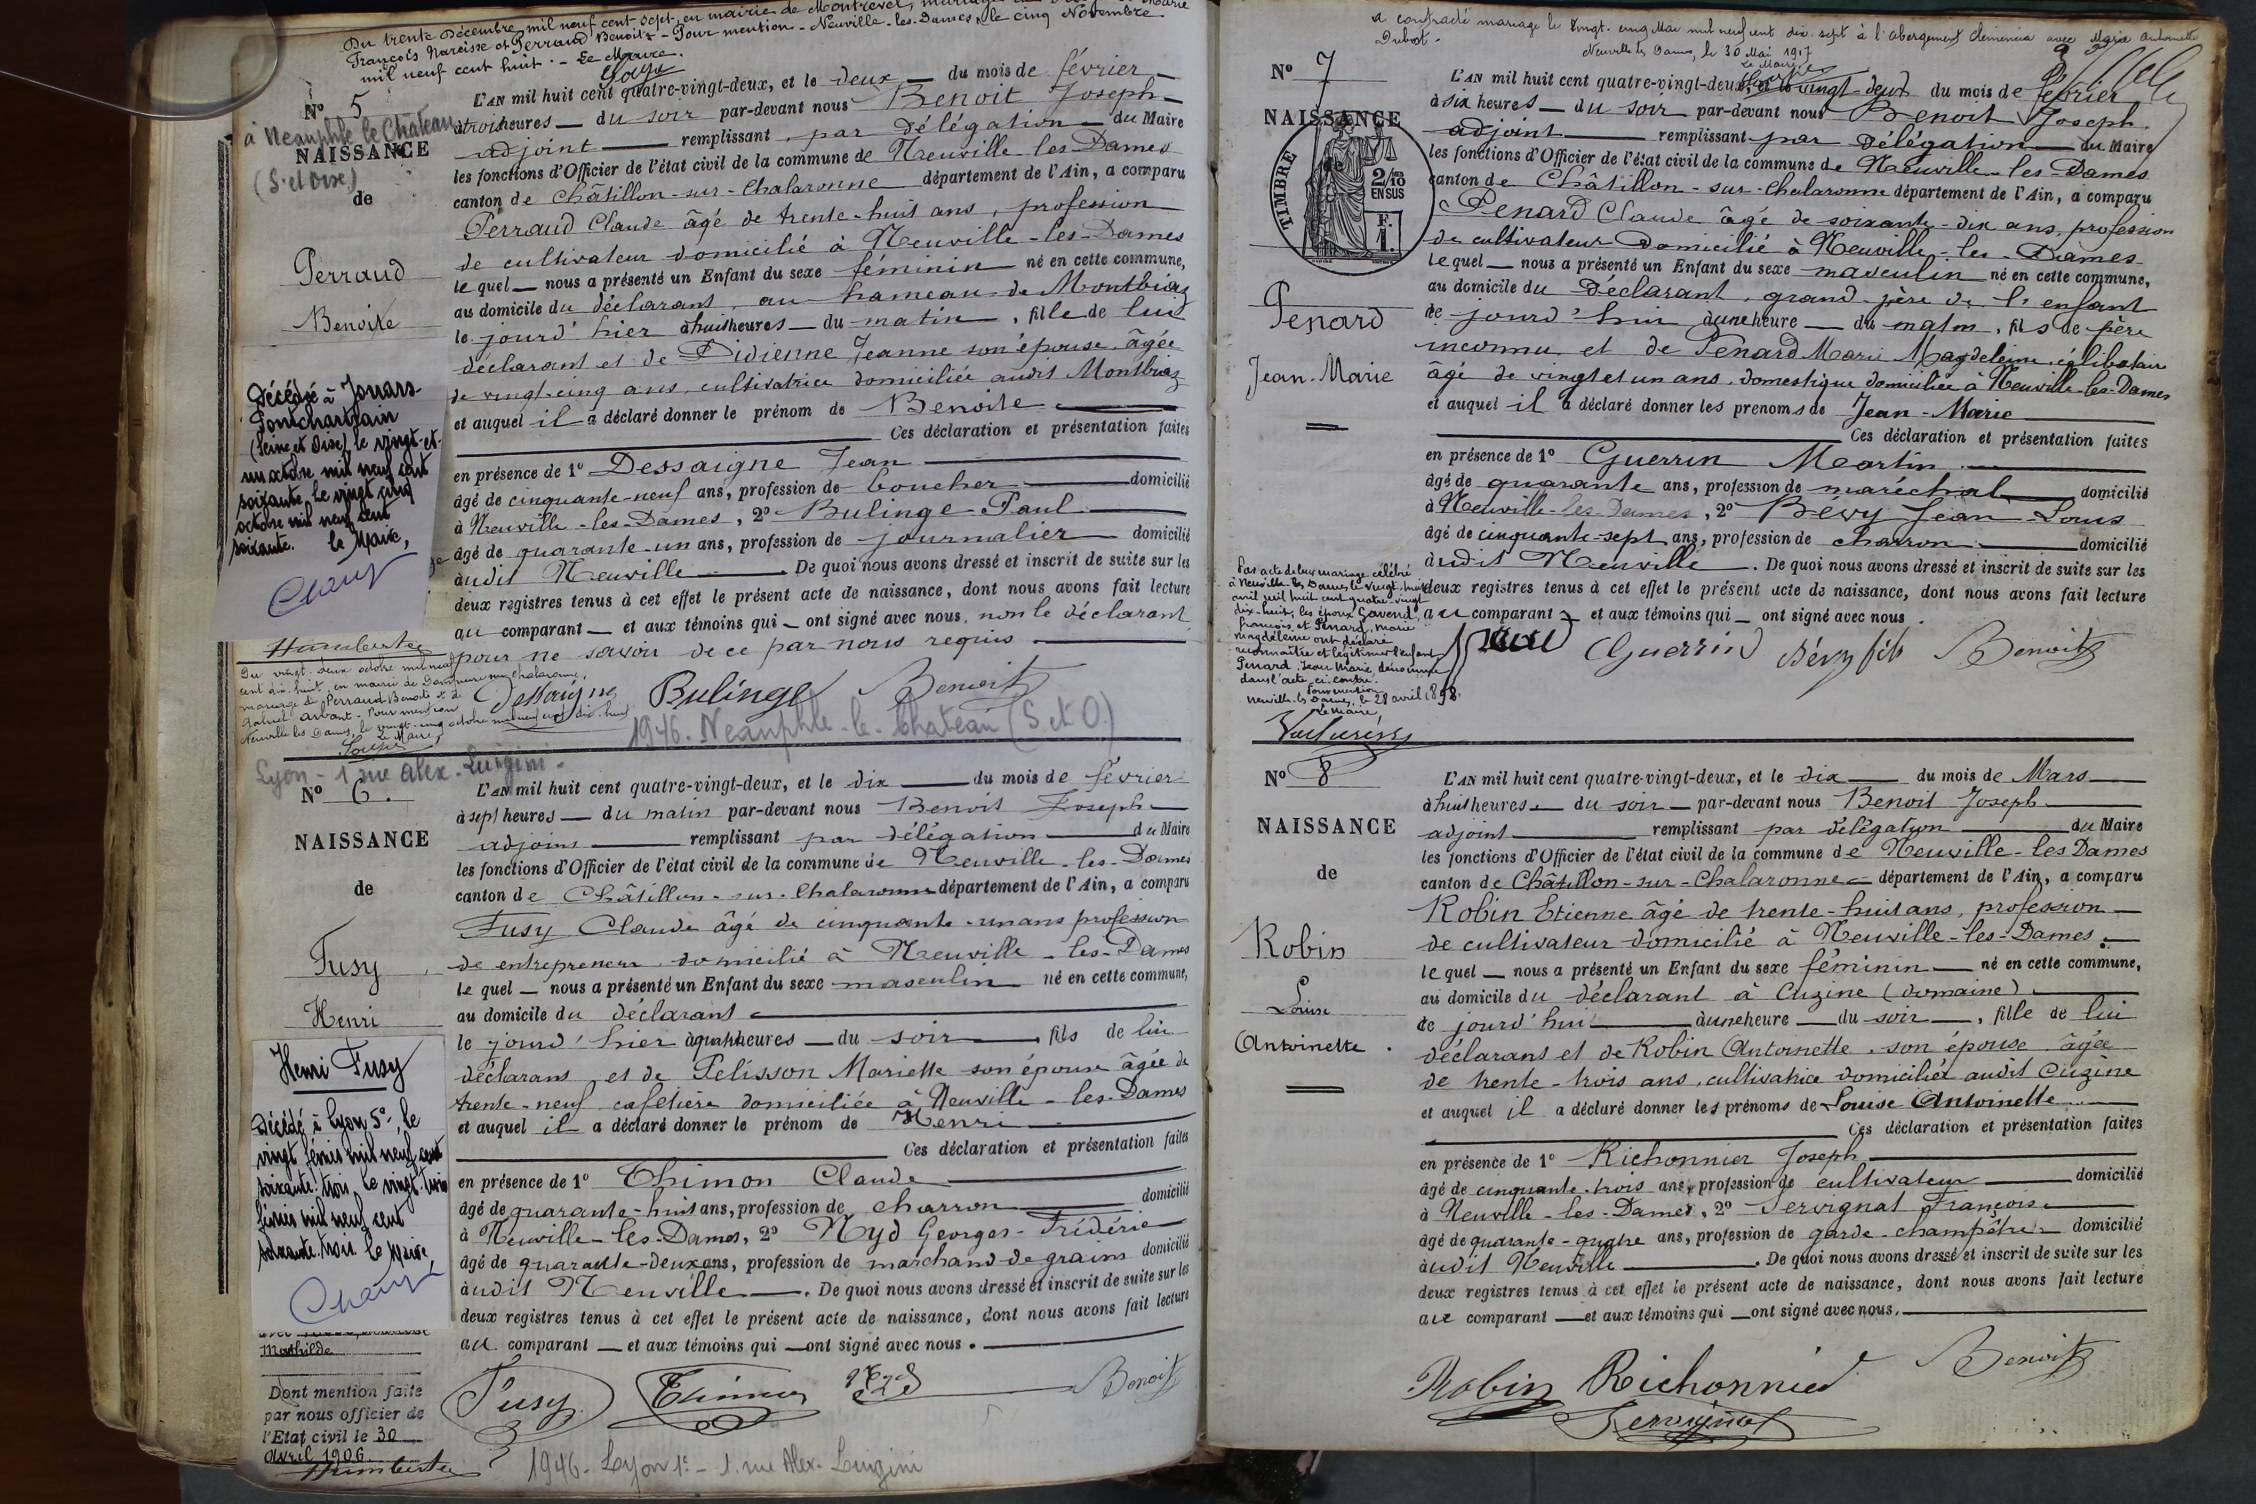 Du trente Décembre mil neuf cent sept, en mairie de Montrevel, mariage
François Narcisse et Perraud Benoite - Pour mention - Neuville-les-Dames, le cinq Novembre
mil neuf cent huit. - Le Maire.
N° 5
à Neauphle le Château
NAISSANCE
(S. et Oise)
de
Perraud
Benoite
L'AN mil huit cent quatre-vingt-deux, et le deux du mois de février
à trois heures du soir par-devant nous Benoit Joseph
adjoint remplissant par délégation du Maire
les fonctions d'Officier de l'état civil de la commune de Neuville-les-Dames
canton de Châtillon-sur-Chalaronne département de l'Ain, a comparu
Perraud Claude âgé de trente-huit ans, profession
de cultivateur domicilié à Neuville-les-Dames
le quel nous a présenté un Enfant du sexe féminin né en cette commune,
au domicile du déclarant, au hameau de Montbriaz
le jourd'hier à huit heures du matin, fille de lui
déclarant et de Didienne Jeanne son épouse âgée
de vingt-cinq ans, cultivatrice domiciliée audit Montbriaz
et auquel il a déclaré donner le prénom de Benoite
Ces déclaration et présentation faites
en présence de 1° Dessaigne Jean
âgé de cinquante-neuf ans, profession de boucher domicilié
à Neuville-les-Dames, 2° Bulinge Paul
âgé de quarante-un ans, profession de journalier domicilié
audit Neuville. De quoi nous avons dressé et inscrit de suite sur les
deux registres tenus à cet effet le présent acte de naissance, dont nous avons fait lecture
au comparant et aux témoins qui ont signé avec nous, non le déclarant
pour ne savoir de ce par nous requis
Dessaigne Bulinge Benoit
1946. Neauphle-le-Chateau (S et O)
Décédé à Jouars-
Pontchartrain
(Seine et Oise) le vingt-et-
un octobre mil neuf cent
soixante. Le vingt cinq
octobre mil neuf cent
soixante. le Maire,
Humbert
Du vingt-deux octobre mil neuf
cent dix-huit, en mairie de Dompierre sur Chalaronne,
mariage de Perraud Benoite et de
Pour mention
Neuville les Dames, le vingt-cinq octobre mil neuf cent dix-huit
Le Maire
Lyon - 1 rue Alex. Luigini.
N° 6.
NAISSANCE
de
Fusy
Henri
L'AN mil huit cent quatre-vingt-deux, et le dix du mois de février
à sept heures du matin par-devant nous Benoit Joseph
adjoint remplissant par délégation du Maire
les fonctions d'Officier de l'état civil de la commune de Neuville-les-Dames
canton de Châtillon-sur-Chalaronne département de l'Ain, a comparu
Fusy Claude âgé de cinquante-un ans profession
de entrepreneur domicilié à Neuville-les-Dames
le quel nous a présenté un Enfant du sexe masculin né en cette commune,
au domicile du déclarant
le jourd'hier à quatre heures du soir, fils de lui
déclarant, et de Pelisson Mariette son épouse âgée de
trente-neuf cafetière domiciliée à Neuville-les-Dames
et auquel il a déclaré donner le prénom de Henri
Ces déclaration et présentation faites
en présence de 1° Thimon Claude
âgé de quarante-huit ans, profession de charron domicilié
à Neuville-les-Dames, 2° Nyd Georges-Frédéric
âgé de quarante-deux ans, profession de marchand de grains domicilié
audit Neuville. De quoi nous avons dressé et inscrit de suite sur les
deux registres tenus à cet effet le présent acte de naissance, dont nous avons fait lecture
au comparant et aux témoins qui ont signé avec nous.
Fusy Thimon Nyd Benoit
1946 - Lyon 1° - 1. rue Alex. Luigini
Henri Fusy
Décédé à Lyon 5°, le
vingt février mil neuf cent
soixante-trois. Le vingt-trois
février mil neuf cent
soixante-trois. le Maire,
Mathilde
Dont mention faite
par nous officier de
l'Etat civil le 30
Avril 1906.
Humbert
a contracté mariage le vingt-cinq Mai mil neuf cent dix-sept à l'Abergement Clémencia avec Marie Antoinette
Dubost.
Neuville les Dames, le 30 Mai 1917
Le Maire
N° 7
NAISSANCE
TIMBRE
2/10
EN SUS
F.
1.
Penard
Jean-Marie
L'AN mil huit cent quatre-vingt-deux, et le vingt-deux du mois de février
à six heures du soir par-devant nous Benoit Joseph
adjoint remplissant par délégation du Maire
les fonctions d'Officier de l'état civil de la commune de Neuville-les-Dames
canton de Châtillon-sur-Chalaronne département de l'Ain, a comparu
Penard Claude âgé de soixante-dix ans, profession
de cultivateur domicilié à Neuville-les-Dames
le quel nous a présenté un Enfant du sexe masculin né en cette commune,
au domicile du déclarant, grand-père de l'enfant
ce jourd'hui à une heure du matin, fils de père
inconnu et de Penard Marie Magdeleine célibataire
âgé de vingt et un ans, domestique domiciliée à Neuville-les-Dames
et auquel il a déclaré donner les prenoms de Jean-Marie
Ces déclaration et présentation faites
en présence de 1° Guerrin Martin
âgé de quarante ans, profession de maréchal domicilié
à Neuville-les-Dames, 2° Bévy Jean-Louis
âgé de cinquante-sept ans, profession de charron domicilié
audit Neuville. De quoi nous avons dressé et inscrit de suite sur les
deux registres tenus à cet effet le présent acte de naissance, dont nous avons fait lecture
au comparant et aux témoins qui ont signé avec nous.
Guerrin Bévy fils Benoit
Par acte de leur mariage célébré
à Neuville les Dames le vingt-huit
avril mil huit cent quatre-vingt
dix-huit, les époux Gavend,
françois, et Penard, Marie
magdeleine ont déclaré
reconnaître et légitimer l'enfant
Penard Jean Marie dénommé
dans l'acte ci-contre.
Pour mention
Neuville-les-Dames, le 28 avril 1898.
Le Maire,
N° 8
NAISSANCE
de
Robin
Louise
Antoinette.
L'AN mil huit cent quatre-vingt-deux, et le dix du mois de Mars
à huit heures du soir par-devant nous Benoit Joseph
adjoint remplissant par délégation du Maire
les fonctions d'Officier de l'état civil de la commune de Neuville-les Dames
canton de Châtillon-sur-Chalaronne département de l'Ain, a comparu
Robin Etienne âgé de trente-huit ans, profession
de cultivateur domicilié à Neuville-les-Dames.
le quel nous a présenté un Enfant du sexe féminin né en cette commune,
au domicile du déclarant à Cuzine (domaine)
ce jourd'hui à une heure du soir, fille de lui
déclarant et de Robin Antoinette, son épouse âgée
de trente-trois ans, cultivatrice domiciliée audit Cuzine
et auquel il a déclaré donner les prénoms de Louise Antoinette
Ces déclaration et présentation faites
en présence de 1° Richonnier Joseph
âgé de cinquante-trois ans, profession de cultivateur domicilié
à Neuville-les-Dames, 2° Servignat François
âgé de quarante-quatre ans, profession de garde-champêtre domicilié
audit Neuville. De quoi nous avons dressé et inscrit de suite sur les
deux registres tenus à cet effet le présent acte de naissance, dont nous avons fait lecture
au comparant et aux témoins qui ont signé avec nous.
Robin Richonnier Benoit
Servignat